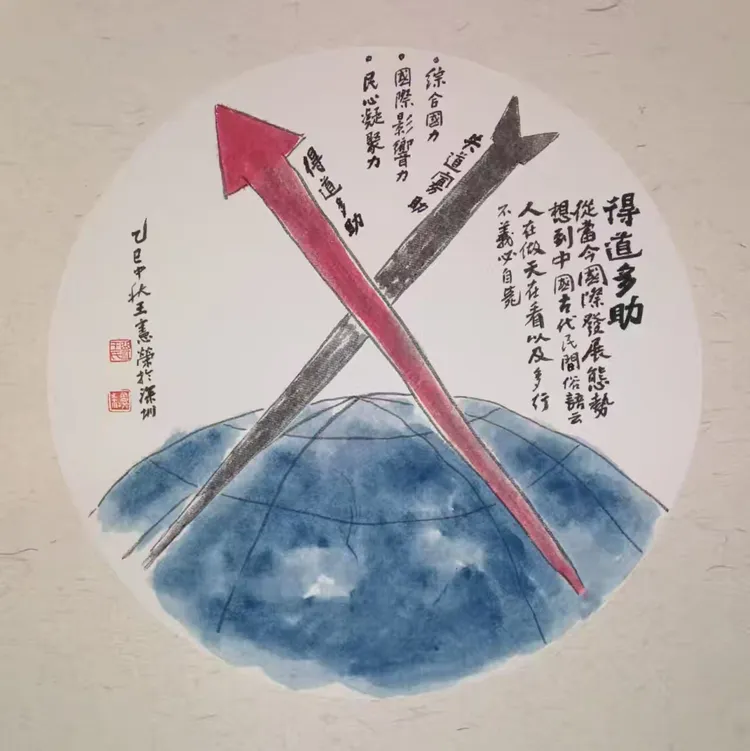 得道多助
從當今國際發展態勢
想到中國古代民間俗語云
人在做天在看以及多行
不義必自斃
・綜合國力
・國際影響力
・民心凝聚力
失道寡助
得道多助
乙巳中秋王憲榮於深圳